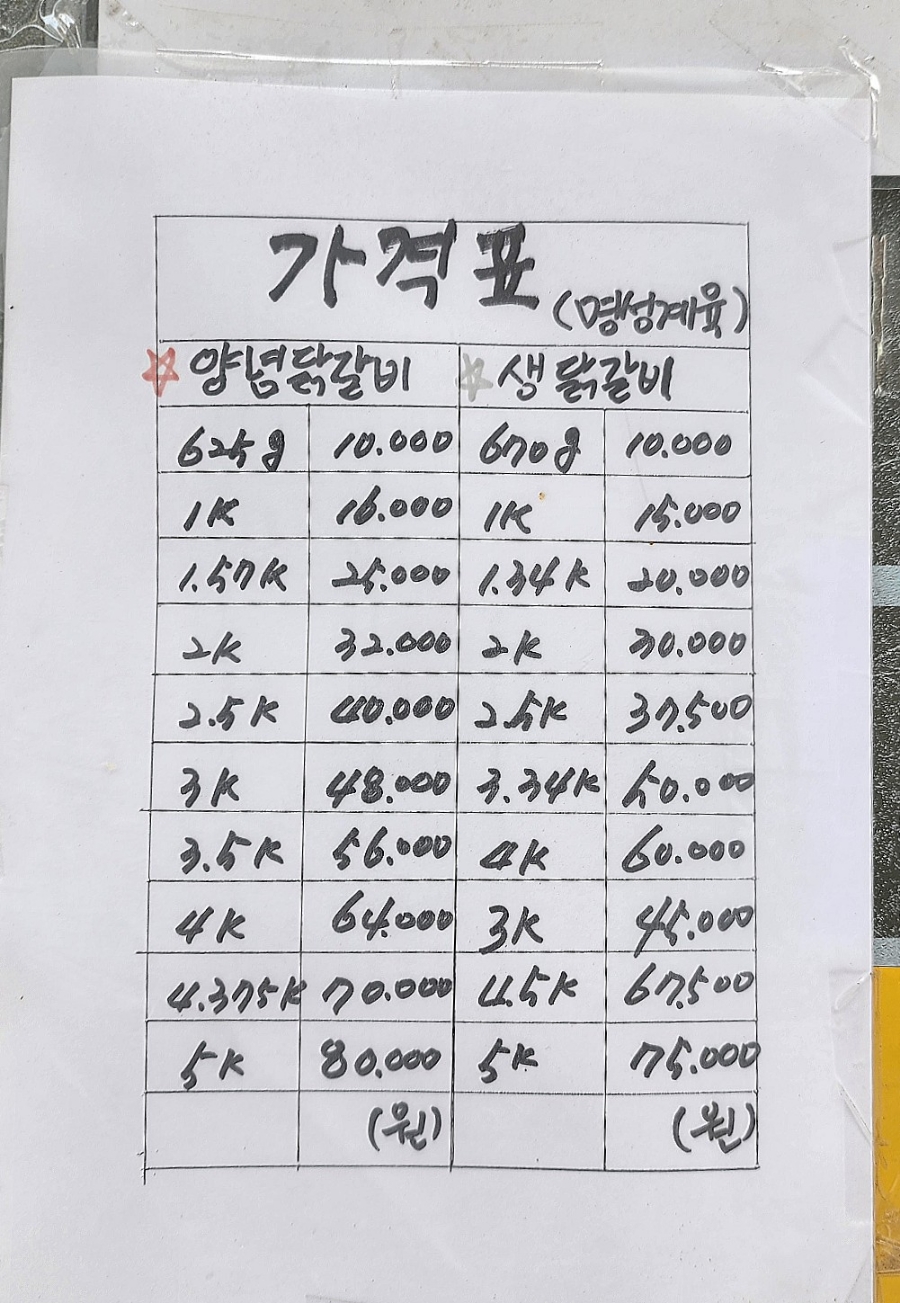 가격표
(명성계육)
☆양념닭갈비 ☆생닭갈비
625g 10.000 670g 10.000
1K 16.000 1K 15.000
1.57K 25.000 1.34K 20.000
2K 32.000 2K 30.000
2.5K 40.000 2.5K 37.500
3K 48.000 3.34K 50.000
3.5K 56.000 4K 60.000
4K 64.000 3K 45.000
4.375K 70.000 4.5K 67.500
5K 80.000 5K 75.000
(원) (원)